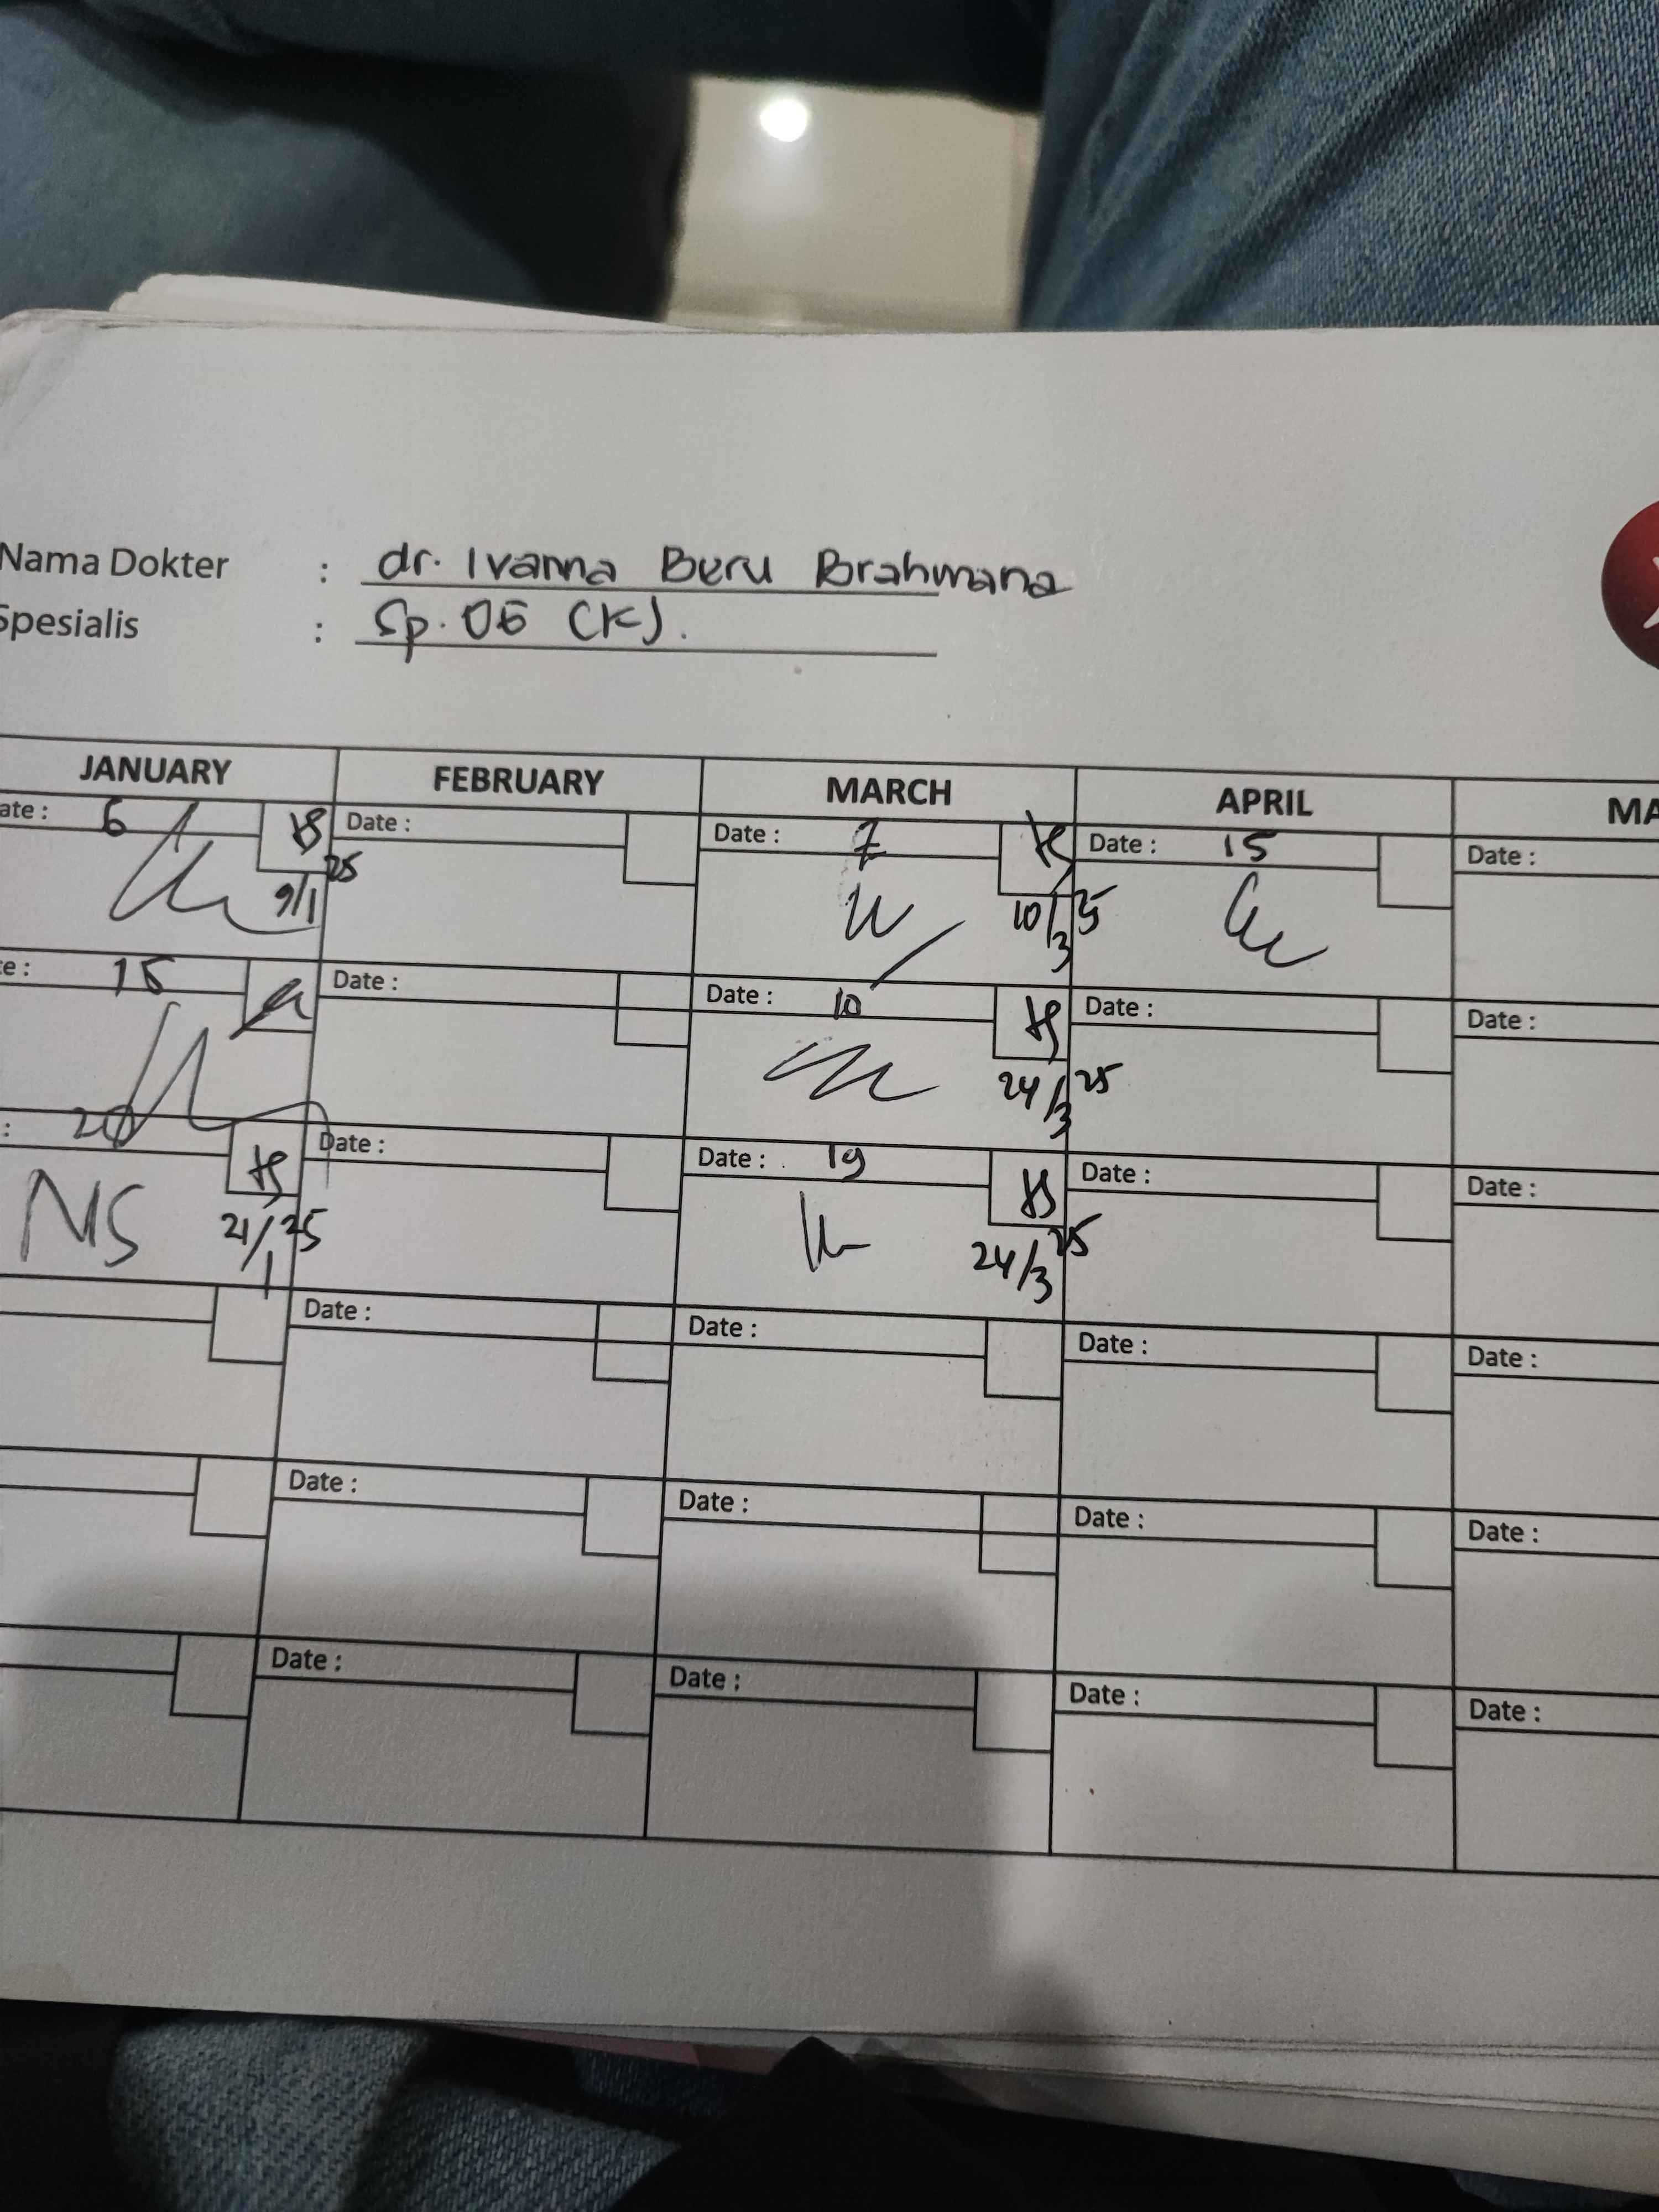 Nama Dokter : dr. Ivanna Beru Brahmana
Spesialis : Sp. OG (K).
JANUARY FEBRUARY MARCH APRIL MA
ate : 6 Date : Date : 7 Date : 15 Date :
9/1 25 10/3 25
te : 15 Date : Date : 10 Date : Date :
24/3 25
: 20 Date : Date : 19 Date : Date :
NS 21/1 25 24/3 25
Date : Date : Date : Date :
Date : Date : Date : Date :
Date : Date : Date : Date :